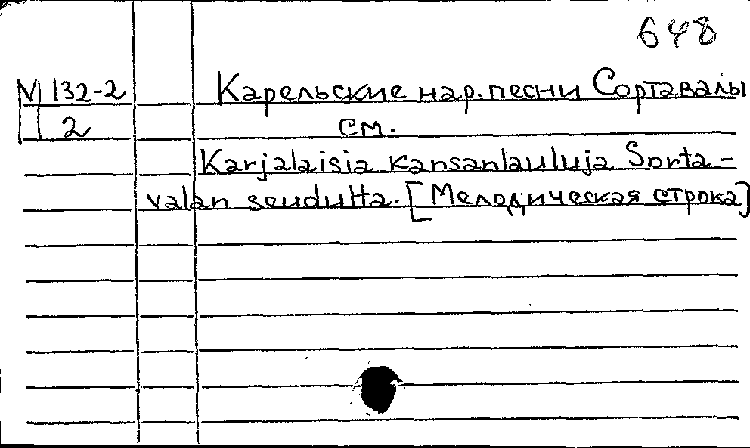 648
M 132-2 Карельские нар. песни Сортавалы
2 см.
Karjalaisia kansanlauluja Sorta-
valan seudulta. [Мелодическая строка]